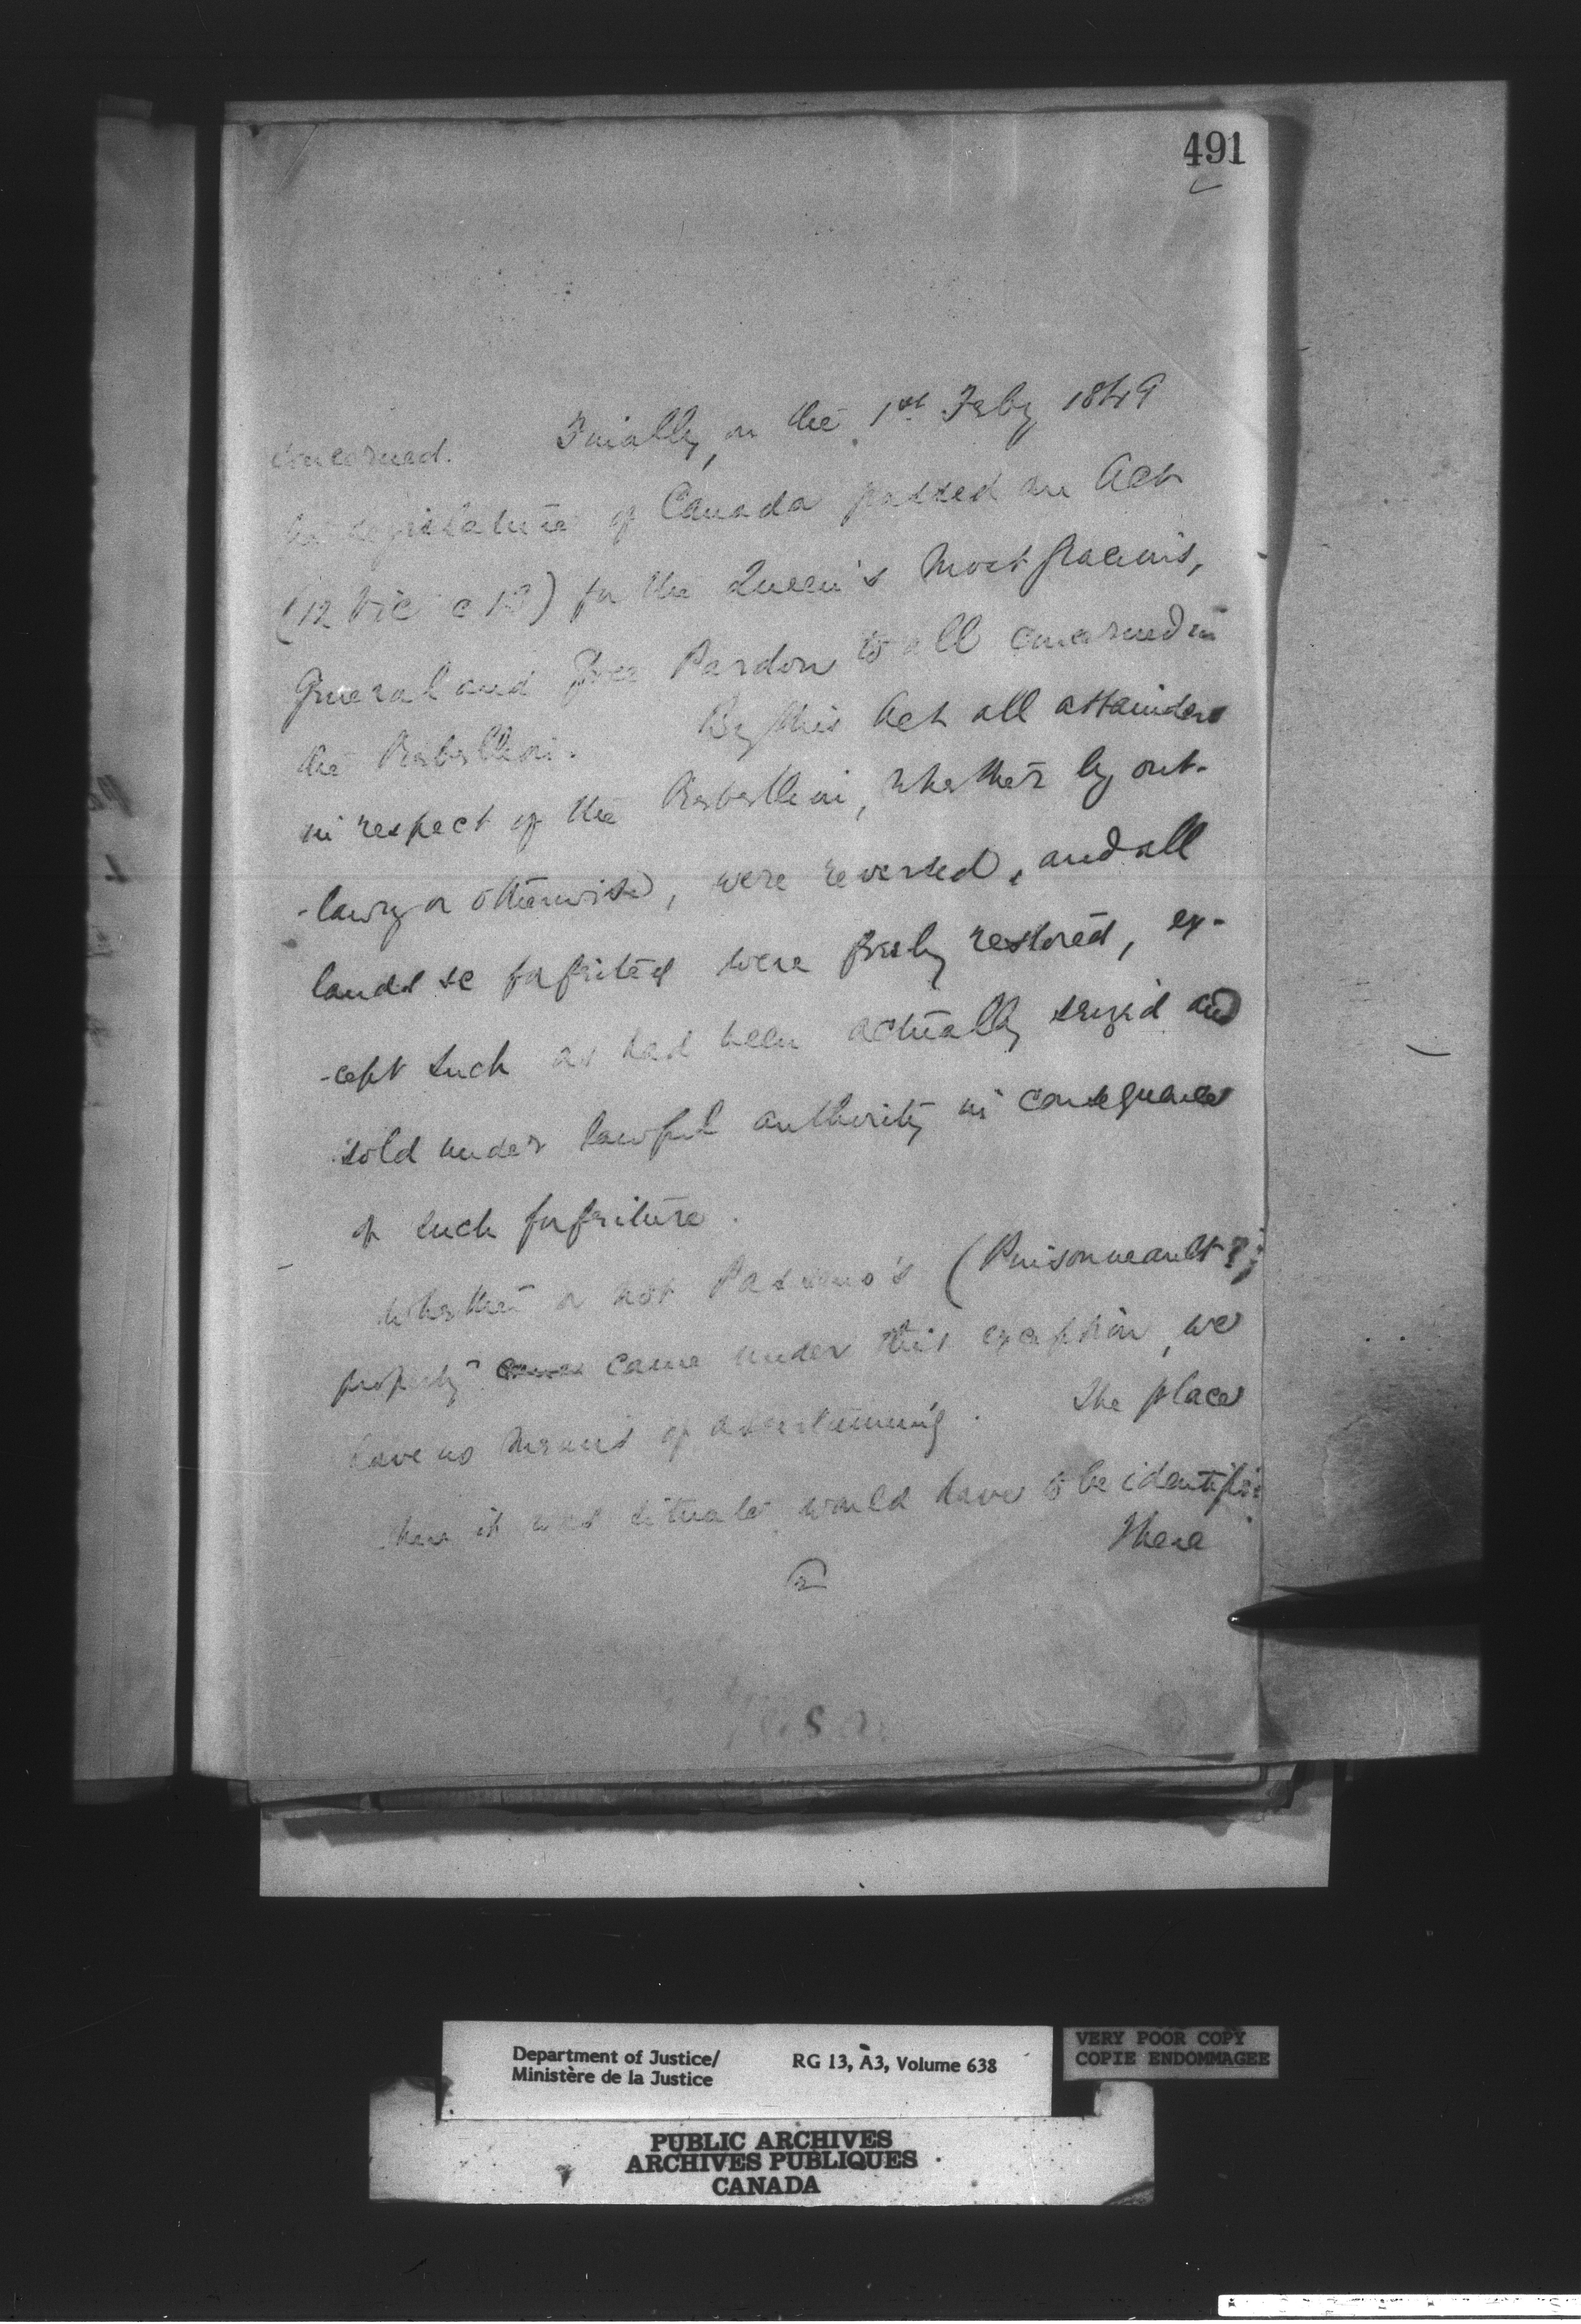 491
concerned. Finally, on the 1st Feby 1849
the legislature of Canada passed an Act
(12 Vic c 13) for the Queen's Most Gracious,
General and Free Pardon to all concerned in
the Rebellion. By this Act all attainders
in respect of the Rebellion, whether by out-
-lawry or otherwise, were reversed, and all
lands so forfeited were freely restored, ex-
-cept such as had been actually seized and
sold under lawful authority in consequence
of such forfeiture.
Whether or not (Prisonneault?)
property came under this exception, we
have no means of ascertaining. The place
where it was situate would have to be identified
There
Department of Justice/
Ministère de la Justice
RG 13, A3, Volume 638
VERY POOR COPY
COPIE ENDOMMAGEE
PUBLIC ARCHIVES
ARCHIVES PUBLIQUES
CANADA